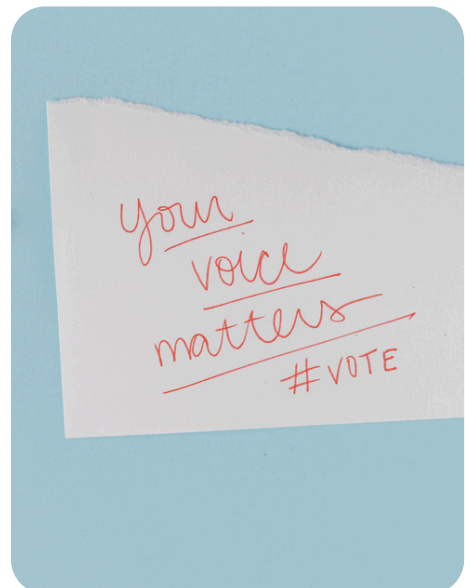 your
voice
matters
#VOTE